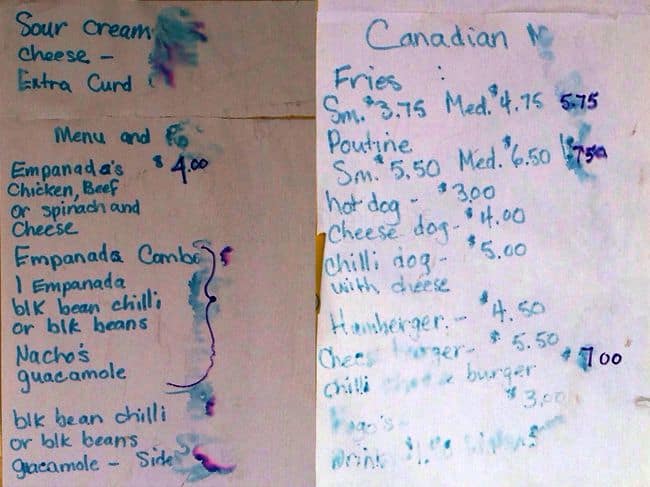 Sour cream
cheese -
Extra Curd
Menu and
Empanada's $4.00
Chicken, Beef
or spinach and
Cheese
Empanada Combo
1 Empanada
blk bean chilli
or blk beans
Nacho's
guacamole
blk bean chilli
or blk beans
guacamole - Side
Canadian
Fries :
Sm. $3.75 Med. $4.75 5.75
Poutine
Sm. $5.50 Med. $6.50 750
hot dog - $3.00
Cheese dog - $4.00
chilli dog - $5.00
with cheese
Hamberger. - $4.50
$5.50
chilli burger $7 00
$3.00